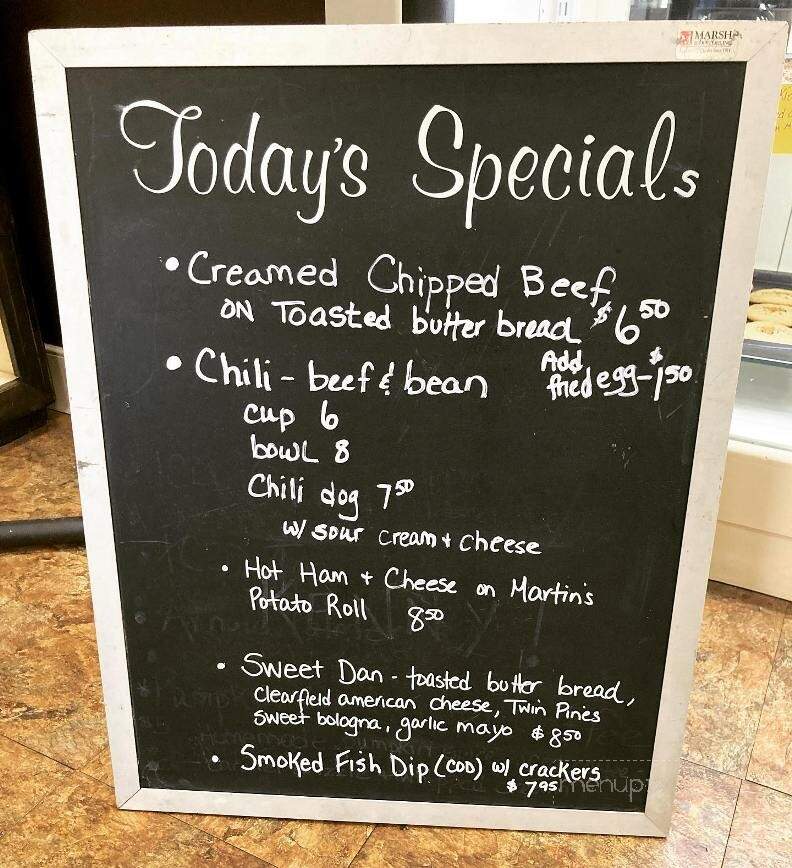 MARSH
Today's Specials
• Creamed Chipped Beef
on Toasted butter bread $6 50
• Chili - beef & bean
Add $
fried egg - 1 50
cup 6
bowl 8
Chili dog 7 50
w/ sour cream + cheese
• Hot Ham + Cheese on Martin's
Potato Roll 8 50
• Sweet Dan - toasted butter bread,
clearfield american cheese, Twin Pines
sweet bologna, garlic mayo $8 50
• Smoked Fish Dip (COD) w/ crackers
$7 95
menup